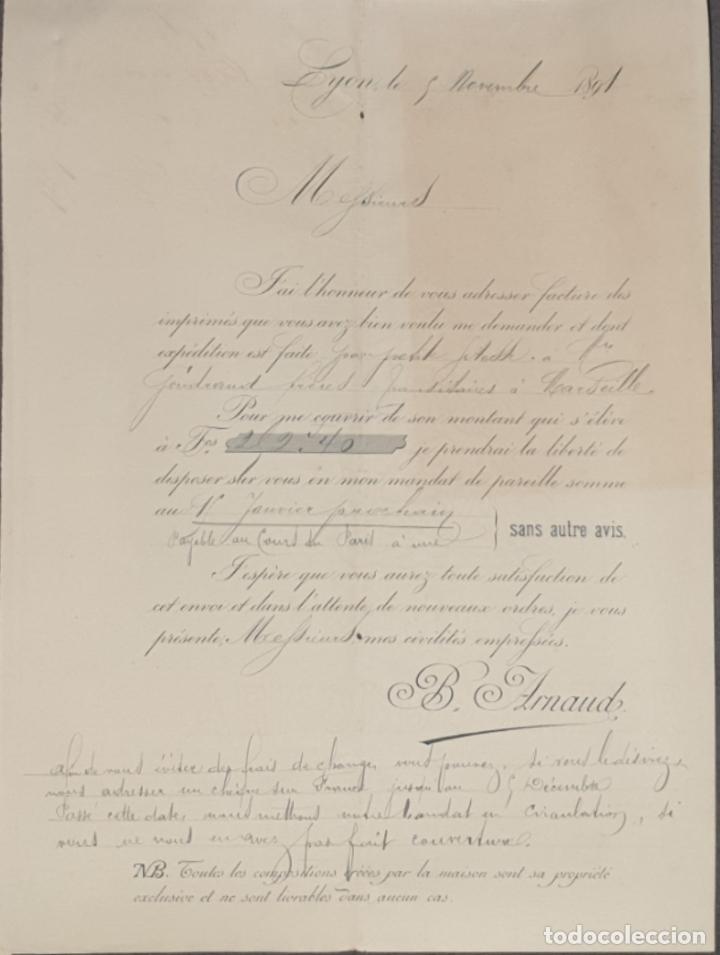 Lyon, le 5 Novembre 1891
Messieurs
J'ai l'honneur de vous adresser facture des
imprimés que vous avez bien voulu me demander et dont
expédition est faite, par petite à Mrs
Gondrand frères Transitaires à Marseille
Pour me couvrir de son montant qui s'élève
à Fcs 292.40 je prendrai la liberté de
disposer sur vous en mon mandat de pareille somme
au 1er Janvier prochain
payable au Cours du Paris à vue } sans autre avis.
J'espère que vous aurez toute satisfaction de
cet envoi et dans l'attente, de nouveaux ordres, je vous
présente, Messieurs, mes civilités empressées.
B. Arnaud
afin de nous éviter des frais de change, vous pouvez, si vous le désirez,
nous adresser un chèque sur France jusqu'au Décembre
Passé cette date, nous mettrons notre mandat en circulation, si
vous ne nous en avez pas fait couverture.
NB. Toutes les compositions créées par la maison sont sa propriété
exclusive et ne sont livrables dans aucun cas.
todocoleccion
todocoleccion.net